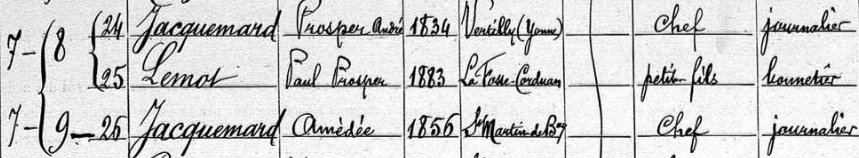 7 - 8 24 Jacquemard Prosper André 1834 Vertilly (Yonne) Chef journalier
25 Lemot Paul Prosper 1883 La Fosse-Corduan petit-fils bonnetier
7 - 9 - 26 Jacquemard Amédée 1856 St Martin de Bos⁠y Chef journalier